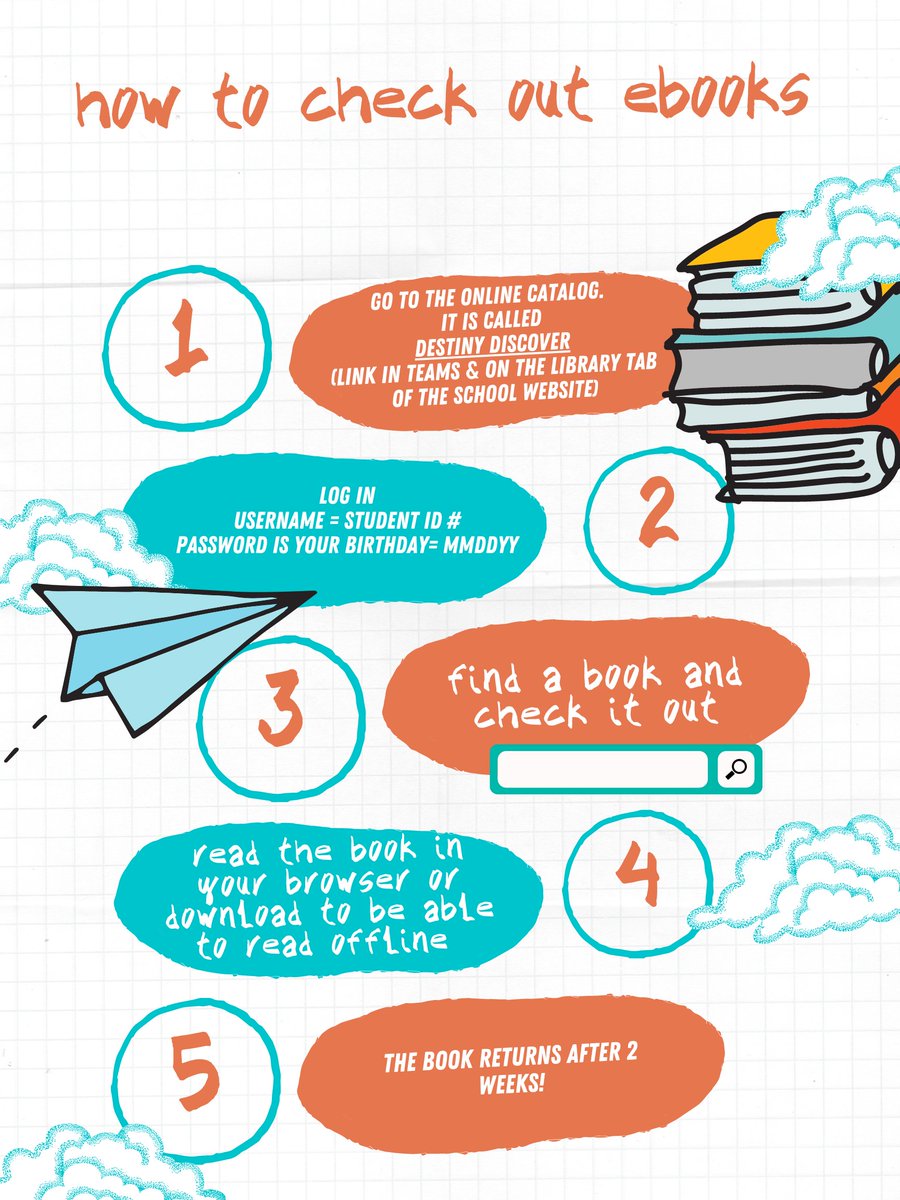 how to check out ebooks
1
GO TO THE ONLINE CATALOG.
IT IS CALLED
DESTINY DISCOVER
(LINK IN TEAMS & ON THE LIBRARY TAB
OF THE SCHOOL WEBSITE)
2
LOG IN
USERNAME = STUDENT ID #
PASSWORD IS YOUR BIRTHDAY= MMDDYY
3
find a book and
check it out
4
read the book in
your browser or
download to be able
to read offline
5
THE BOOK RETURNS AFTER 2
WEEKS!